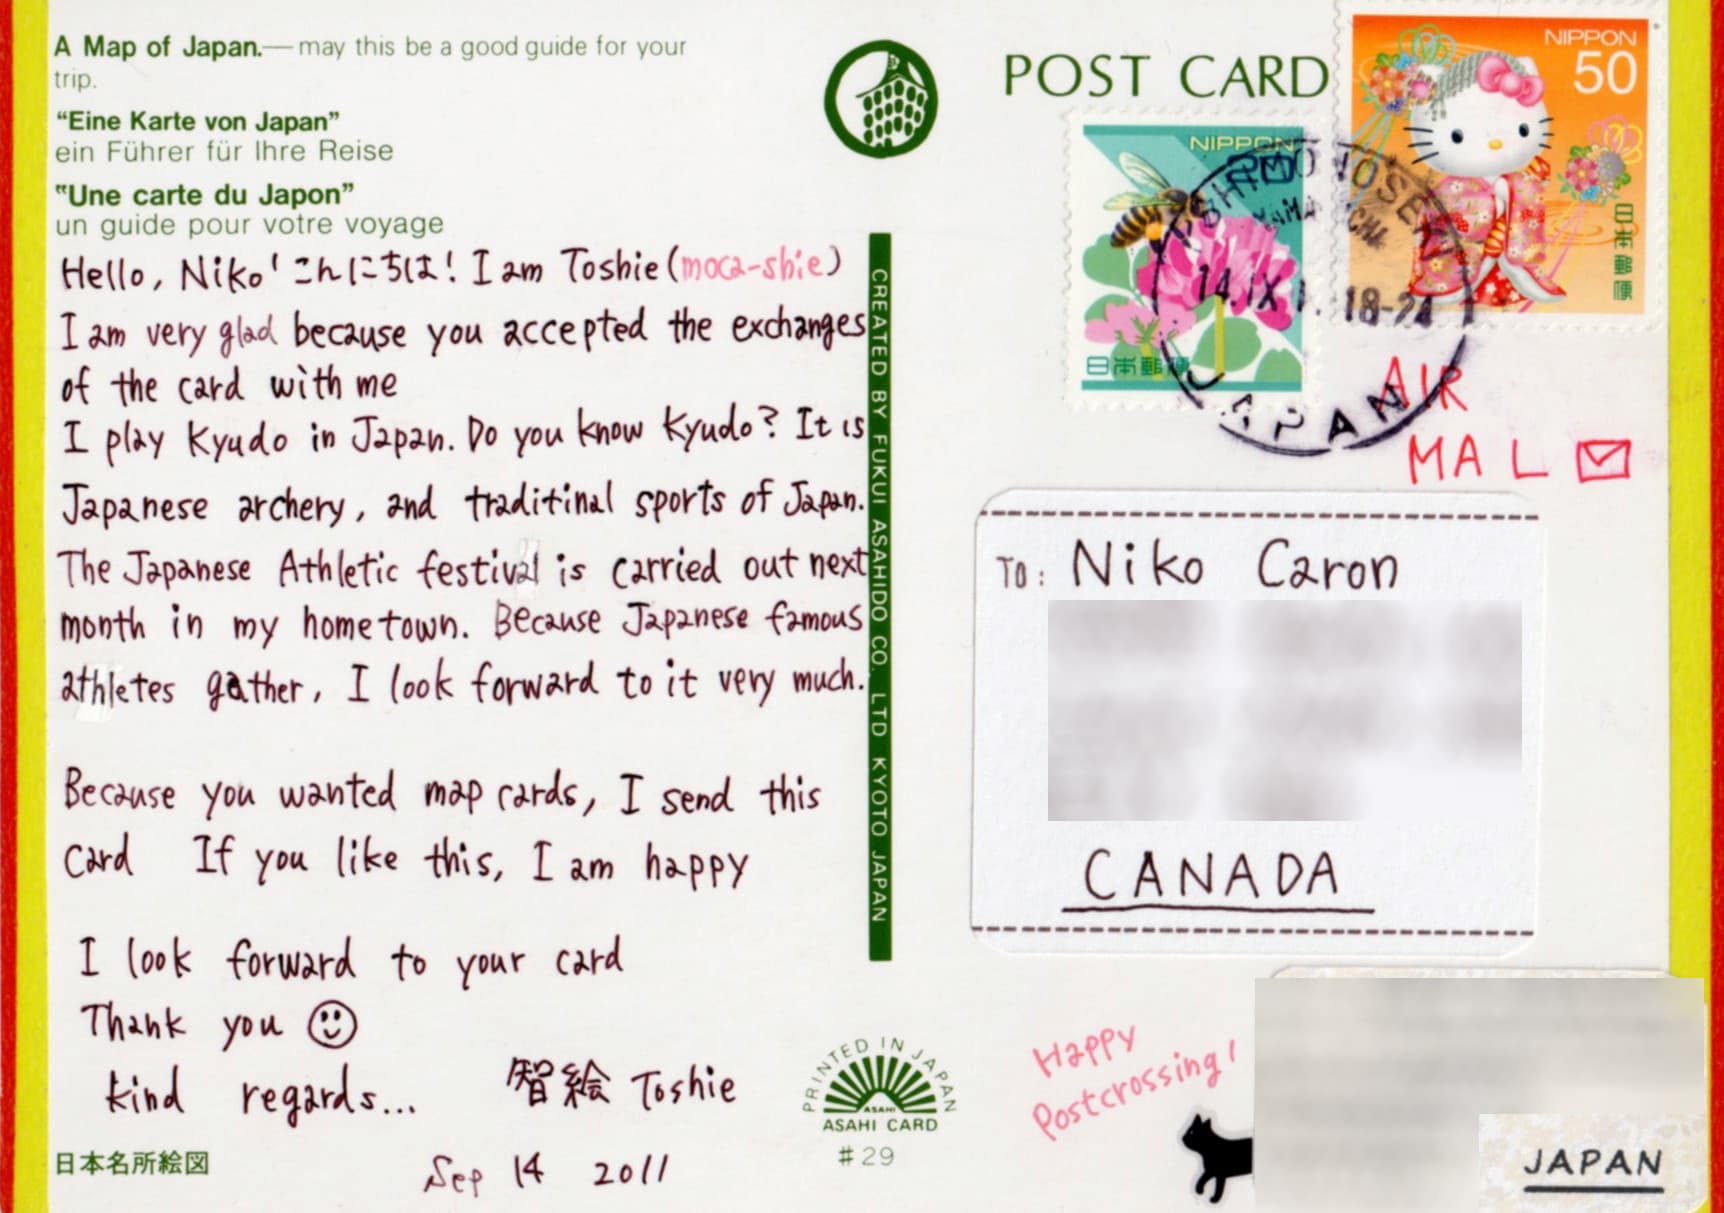 A Map of Japan.— may this be a good guide for your
trip.
"Eine Karte von Japan"
ein Führer für Ihre Reise
"Une carte du Japon"
un guide pour votre voyage
Hello, Niko! こんにちは! I am Toshie (moca-shie)
I am very glad because you accepted the exchanges
of the card with me
I play Kyudo in Japan. Do you know Kyudo? It is
Japanese archery, and traditinal sports of Japan.
The Japanese Athletic festival is carried out next
month in my hometown. Because Japanese famous
athletes gather, I look forward to it very much.
Because you wanted map cards, I send this
card If you like this, I am happy
I look forward to your card
Thank you
kind regards...
智絵 Toshie
Sep 14 2011
日本名所絵図
CREATED BY FUKUI ASAHIDO CO. LTD KYOTO JAPAN
PRINTED IN JAPAN
ASAHI
ASAHI CARD
#29
POST CARD
NIPPON
50
日本郵便
NIPPON
日本郵便
14.IX
18-24
JAPAN
AIR
MA L
TO: Niko Caron
CANADA
Happy
Postcrossing!
JAPAN